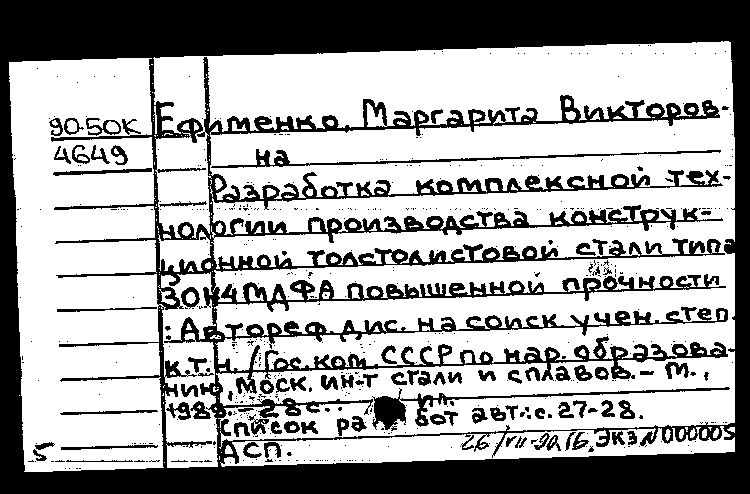 90-50К Ефименко, Маргарита Викторов-
4649 на
Разработка комплексной тех-
нологии производства конструк-
ционной толстолистовой стали типа
30Н4МДФА повышенной прочности
: Автореф. дис. на соиск. учен. степ.
к.т.н. / Гос. ком. СССР по нар. образова-
нию, моск. ин-т стали и сплавов. – М.,
1989. 28 с.: ил.
Список ра бот авт.: с. 27-28.
5 АСП. 26/VII-90 Экз N 000005